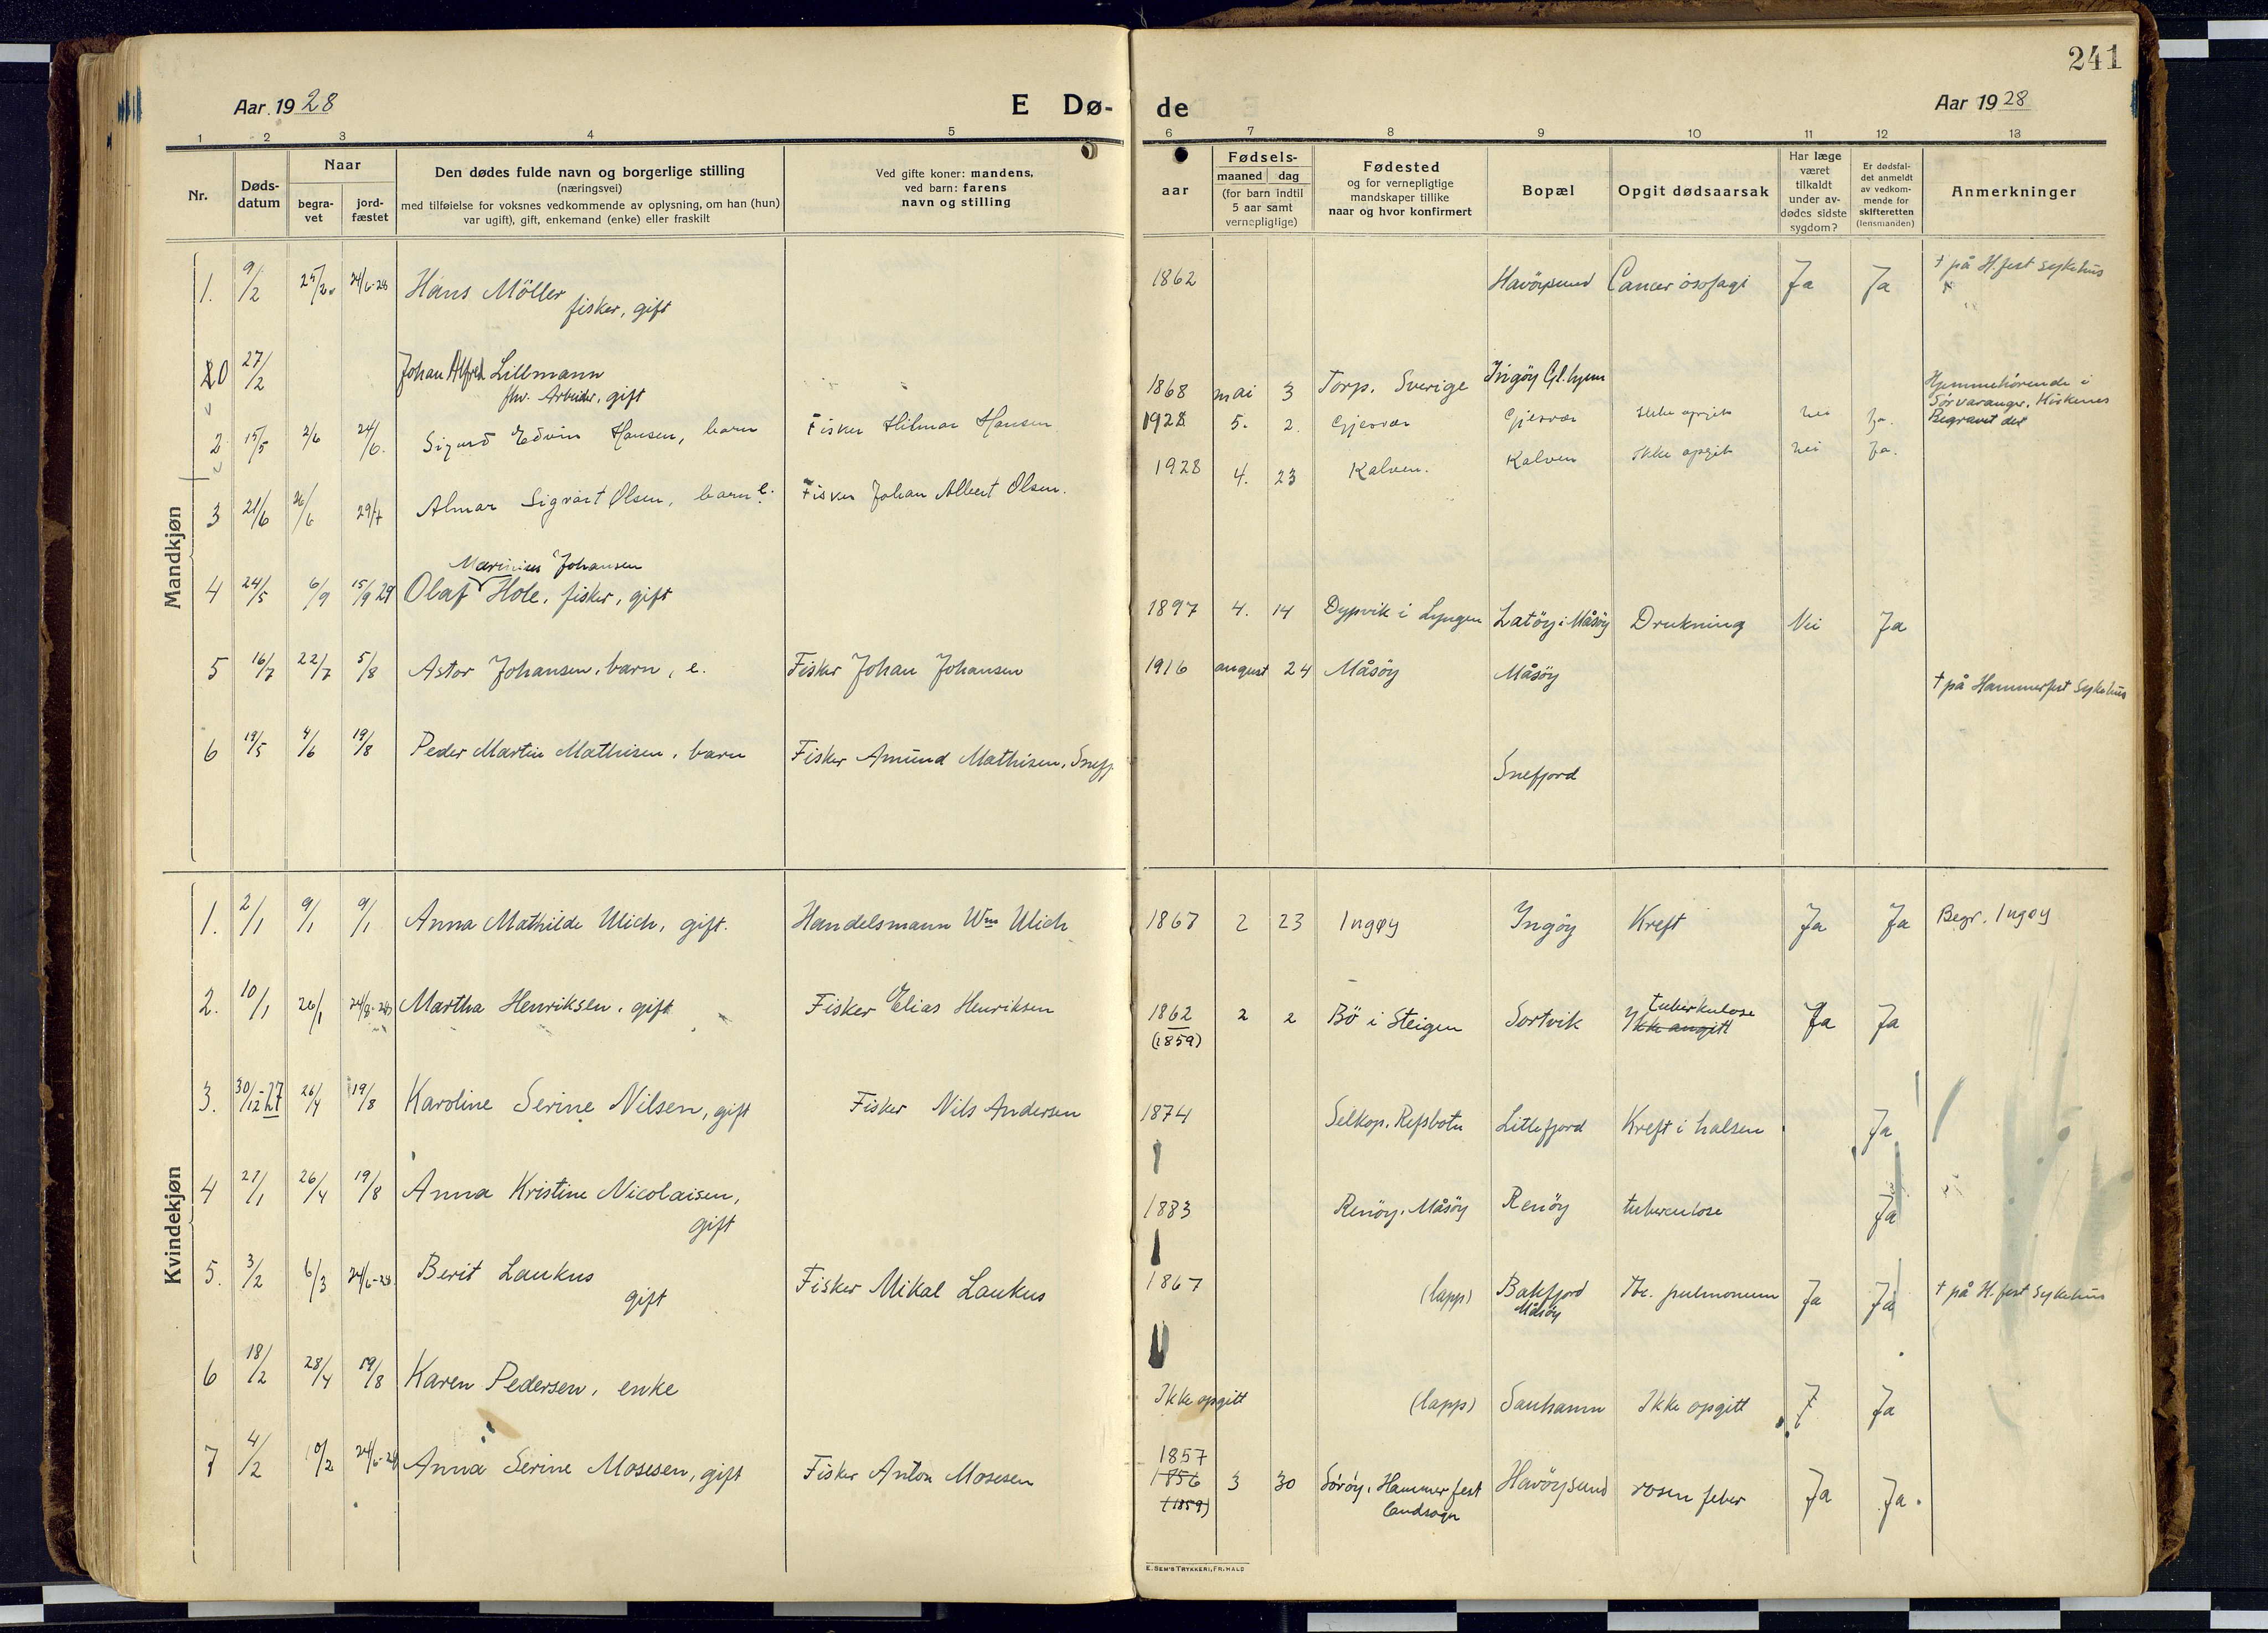 241
Aar 1928 E Dø- de Aar 1928
1 2 3 4 5 6 7 8 9 10 11 12 13
Nr. Døds-datum Naar begra-vet jord-fæstet Den dødes fulde navn og borgerlige stilling (næringsvei) med tilføielse for voksnes vedkommende av oplysning, om han (hun) var ugift), gift, enkemand (enke) eller fraskilt Ved gifte koner: mandens, ved barn: farens navn og stilling aar Fødsels- maaned dag (for barn indtil 5 aar samt vernepligtige) Fødested og for vernepligtige mandskaper tillike naar og hvor konfirmert Bopæl Opgit dødsaarsak Har læge været tilkaldt under av-dødes sidste sygdom? Er dødsfal-det anmeldt av vedkom-mende for skifteretten (lensmanden) Anmerkninger
Mandkjøn
1. 9/2 25/2. 24/6-28 Hans Möller 1862 Havöysund Cancer ösofagi Ja Ja † på H.fest sykehus
fisker, gift
0 27/2 Johan Alfred Lillmann 1868 mai 3 Torp. Sverige Ingöy Gl. hjem Hjemmehörende i
fhv. Arbeider, gift Sörvaranger, Kirkenes
Begravet der
2 15/5 2/6 24/6. Sigurd Edvin Hansen, barn Fisker Hilmar Hansen 1928 5. 2. Gjesvær Gjesvær Ikke opgit nei Ja.
3 21/6 26/6 29/7 Almar Sigvart Olsen, barn e. Fisker Johan Albert Olsen. 1928 4. 23 Kalven. Kalven Ikke opgit nei Ja.
Marinius Johansen
4 24/5 6/9 15/9 29 Olaf Hole, fisker, gift 1897 4. 14 Dypvik i Lyngen Latöy i Måsöy Drukning Nei Ja
5 16/7 22/7 5/8 Astor Johansen, barn, e. Fisker Johan Johansen 1916 august 24 Måsöy Måsöy † på Hammerfest Sykehus
6 19/5 4/6 19/8 Peder Martin Mathisen, barn Fisker Amund Mathisen, Snefj. Snefjord
Kvindekjøn
1. 2/1 9/1 9/1 Anna Mathilde Ulich, gift. Handelsmann Wm Ulich 1867 2 23 Ingøy Ingöy Kreft Ja Ja Begr. Ingøy
2. 10/1 26/1 24/8-28 Martha Henriksen, gift Fisker Elias Henriksen 1862 (1859) 2 2 Bö i Steigen Sortvik tuberkulose Ikke angitt Ja Ja
3. 30/12-27 26/4 19/8 Karoline Serine Nilsen, gift Fisker Nils Andersen 1874 Selkop. Refsbotn Littefjord Kreft i halsen Ja
4 27/1 26/4 19/8 Anna Kristine Nicolaisen, 1883 Renöy, Måsöy Renöy tuberculose Ja
gift
5. 3/2 6/3 24/6-28 Berit Laukus Fisker Mikal Laukus 1867 (lapp) Bakfjord Måsöy Tbc. pulmonum Ja Ja † på H.fest Sykehus
gift
6 18/2 28/4 19/8 Karen Pedersen, enke Ikke opgitt (lapp) Sanhamn Ikke opgitt J Ja
7 4/2 10/2 24/6-28 Anna Serine Mosesen, gift Fisker Anton Mosesen 1857 1856 (1859) 3 30 Söröy, Hammerfest Havöysund rosen feber Ja Ja.
landsogn
E. SEM'S TRYKKERI, FR. HALD